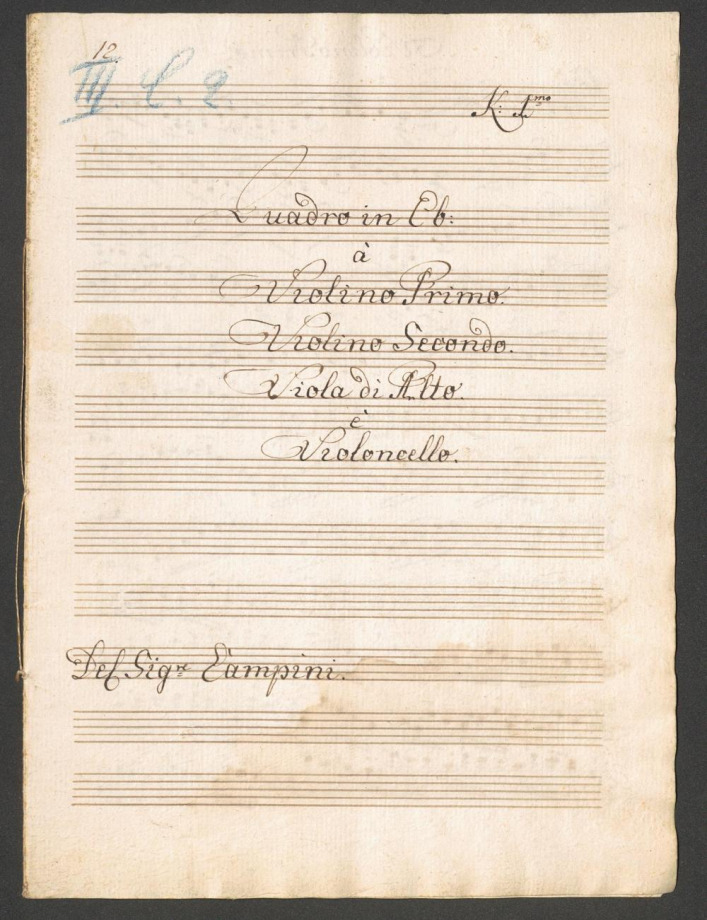 12.
III C. 2
K: 1mo
Quadro in Eb:
à
Violino Primo.
Violino Secondo.
Viola di Alto.
è
Violoncello.
Del Sigre Campini.